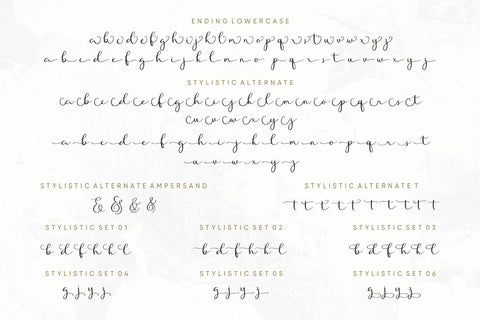 ENDING LOWERCASE
a b c d e f g h i j k l m n o p q r s t u v w x y z
a b c d e f g h i j k l m n o p q r s t u v w x y z
STYLISTIC ALTERNATE
ca cb cc cd ce cf cg ch ci cj ck cl cm cn co cp cq cr cs ct
cu cv cw cx cy cz
a b c d e f g h i j k l m n o p q r s t
u v w x y z
STYLISTIC ALTERNATE AMPERSAND STYLISTIC ALTERNATE T
& & & & t t t t t t t t t t t
STYLISTIC SET 01 STYLISTIC SET 02 STYLISTIC SET 03
b d f h k l b d f h k l b d f h k l
STYLISTIC SET 04 STYLISTIC SET 05 STYLISTIC SET 06
g j y z g j y z g j y z